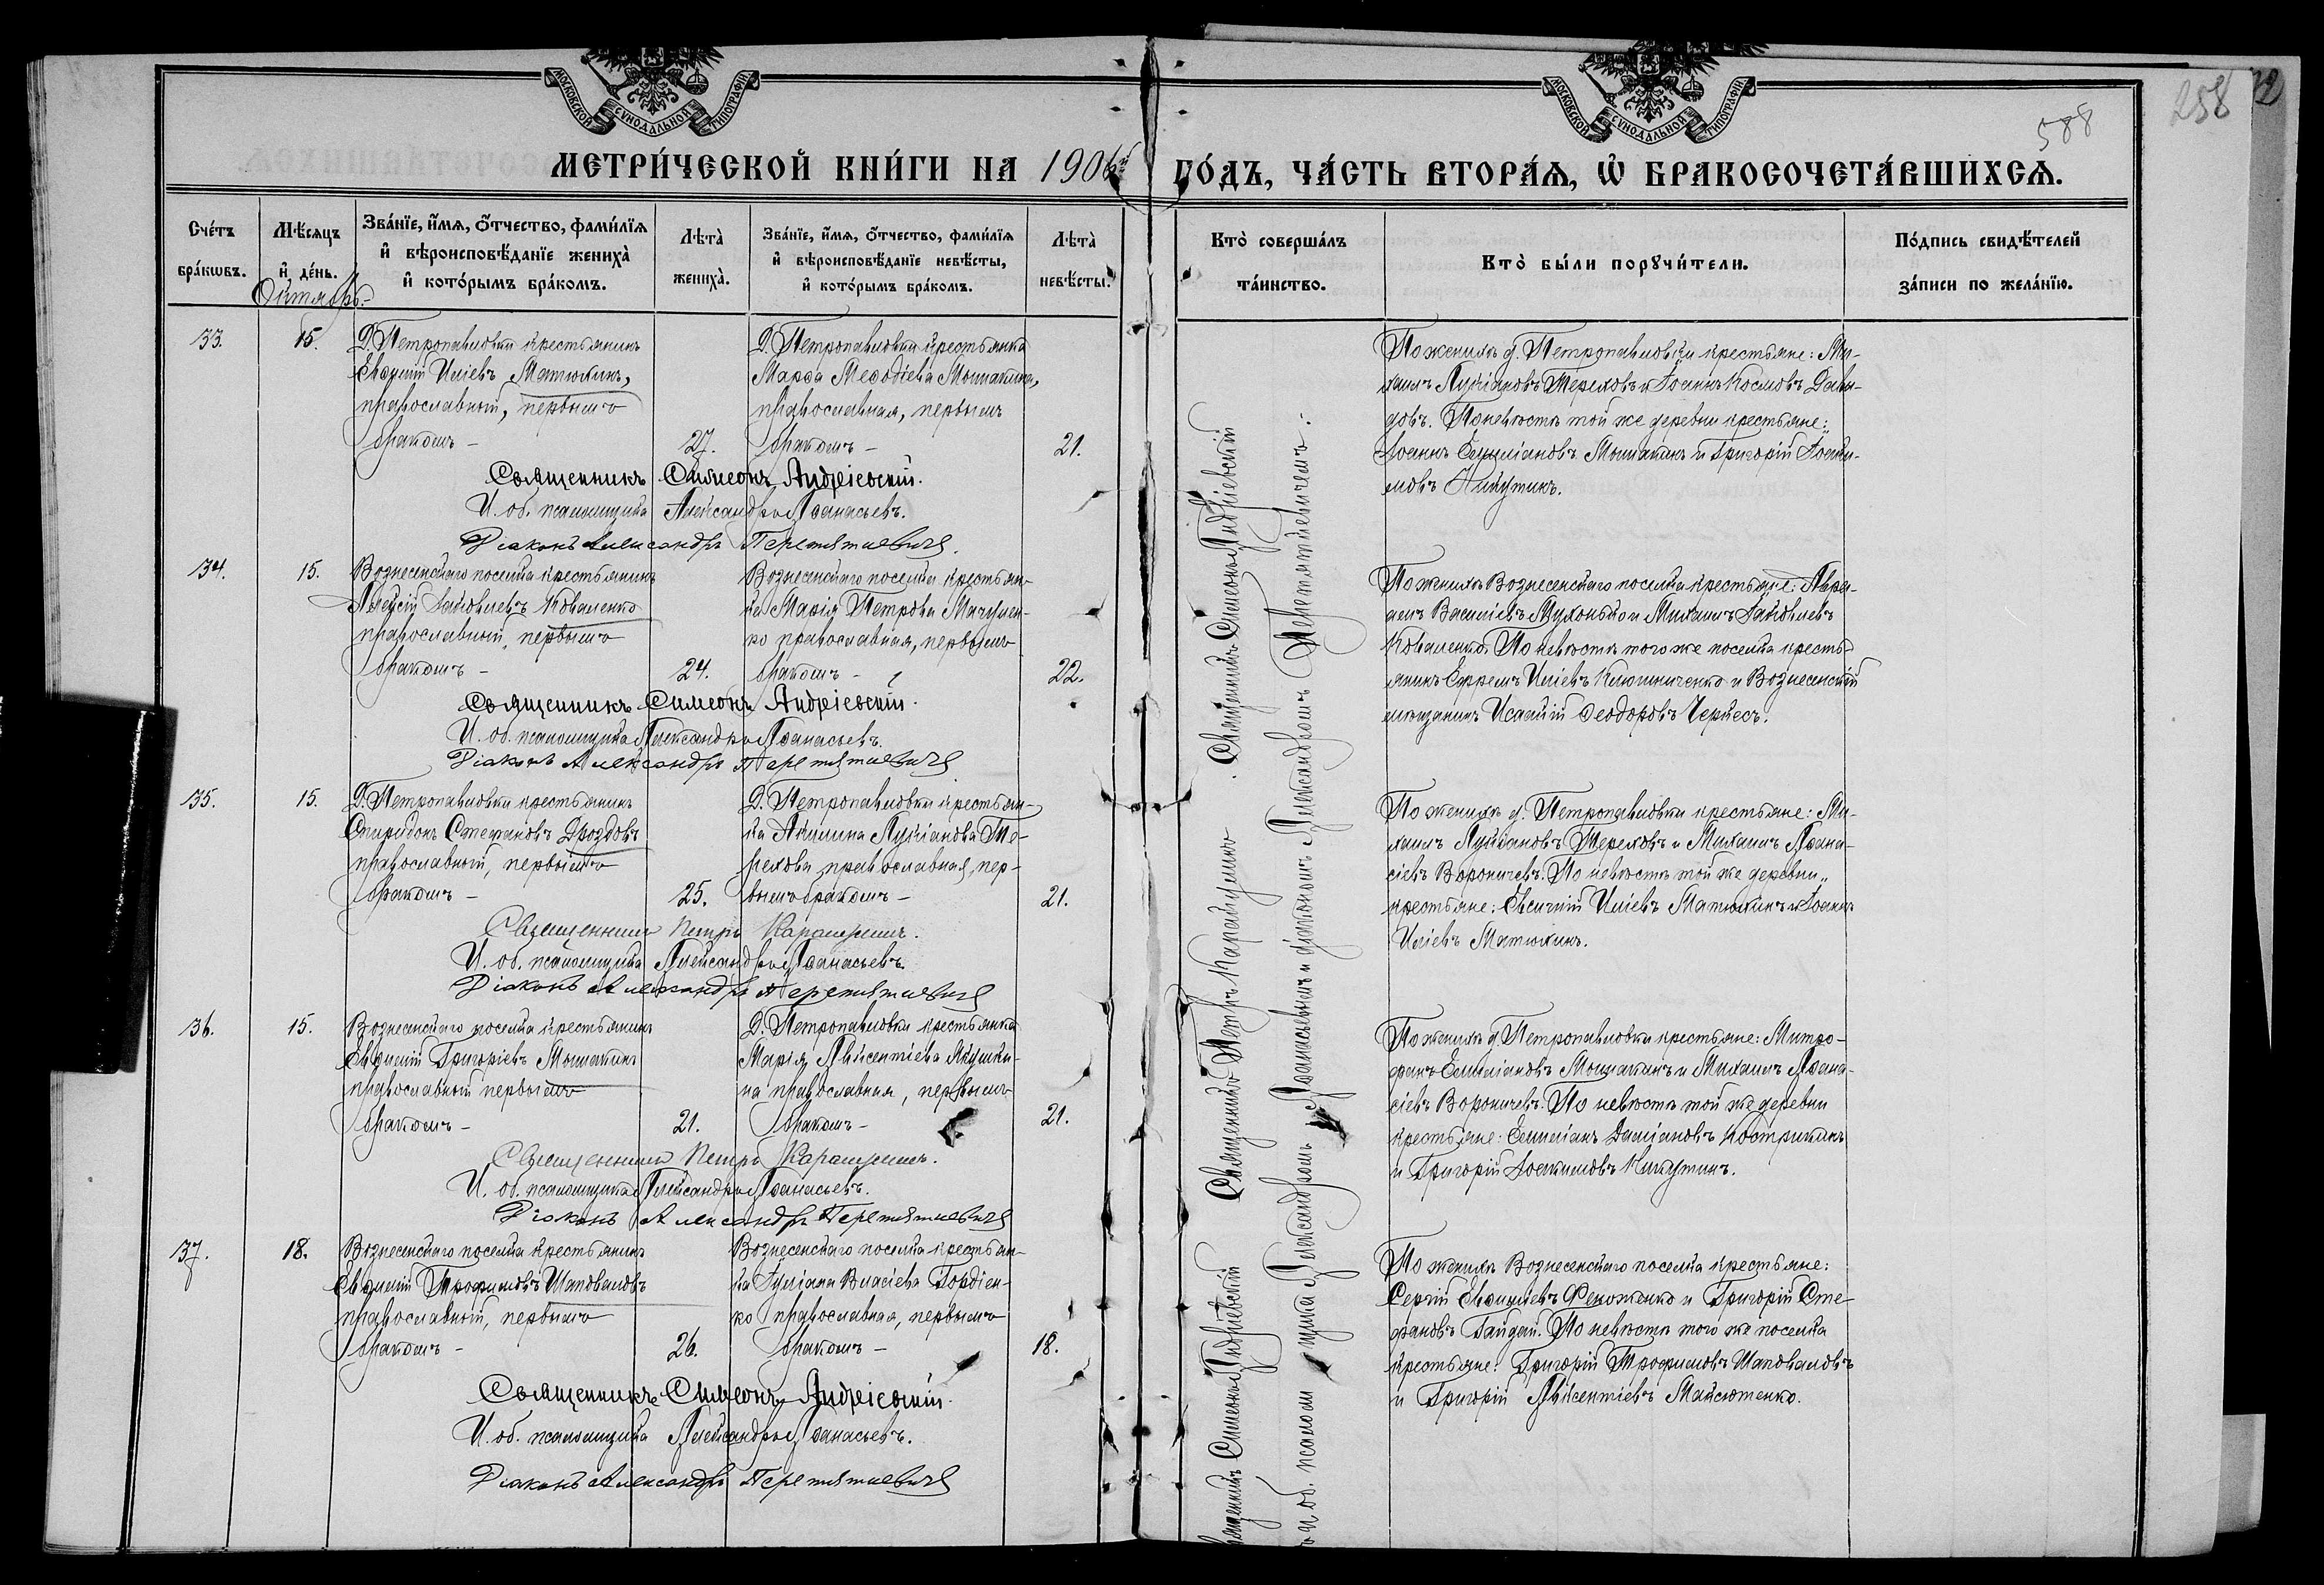 МОСКОВСКОЙ СѴНОДАЛЬНОЙ ТИПОГРАФІИ
МОСКОВСКОЙ СѴНОДАЛЬНОЙ ТИПОГРАФІИ
258
588
МЕТРИ́ЧЕСКОЙ КНИ́ГИ НА 1906й ГО́ДЪ, ЧА́СТЬ ВТОРА́Я, Ѽ БРАКОСОЧЕТА́ВШИХСЯ.
Сче́тъ бра́кѡвъ.
Мѣ́сяцъ и҆ де́нь.
Октябрь.
Зва́нїе, и҆́мя, ѻ҆́тчество, фами́лїя и҆ вѣроисповѣ́данїе жениха̀ и҆ кото́рымъ бра́комъ.
Лѣта̀ жениха̀.
Зва́нїе, и҆́мя, ѻ҆́тчество, фами́лїя и҆ вѣроисповѣ́данїе невѣ́сты, и҆ кото́рымъ бра́комъ.
Лѣта̀ невѣ́сты.
Кто̀ соверша́лъ та́инство.
Кто̀ бы́ли порꙋчи́тели.
По́дпись свидѣ́телей за́писи по жела́нїю.
33.
15.
Д. Петропавловки крестьянинъ
Евѳимій Иліевъ Матюхинъ,
православный, первымъ
бракомъ –
27.
Д. Петропавловки крестьянка
Марѳа Меѳодіева Мошакина,
православная, первымъ
бракомъ –
21.
Священникъ Симеонъ Андріевскій.
И. об. псаломщика Александръ Аѳанасьевъ.
Діаконъ Александръ Перетяткевичъ.
По женихѣ д. Петропавловки крестьяне: Ми-
хаилъ Лукіановъ Тереховъ и Іоаннъ Космовъ Давы-
довъ. По невѣстѣ той же деревни крестьяне:
Іоаннъ Емиліановъ Мошакинъ и Григорій Іоаки-
мовъ Никутинъ.
34.
15.
Вознесенскаго поселка крестьянинъ
Алексій Іаковлевъ Коваленко
православный, первымъ
бракомъ –
24.
Вознесенскаго поселка крестьян-
ка Марія Петрова Мачулен-
ко православная, первымъ
бракомъ –
22.
Священникъ Симеонъ Андріевскій.
И. об. псаломщика Александръ Аѳанасьевъ.
Діаконъ Александръ Перетяткевичъ
По женихѣ Вознесенскаго поселка крестьяне: Авра-
амъ Василіевъ и Михаилъ Іаковлевъ
Коваленко. По невѣстѣ того же поселка кресть-
янинъ Ефремъ Иліевъ Ключниченко и Вознесенскій
мѣщанинъ Исаакій Ѳеодоровъ Черкесъ.
35.
15.
Д. Петропавловки крестьянинъ
Спиридонъ Стефановъ Дроздовъ
православный, первымъ
бракомъ –
25.
Д. Петропавловки крестьян-
ка Акилина Лукіанова Те-
рехова, православная, пер-
вымъ бракомъ –
21.
Священникъ Петръ Карашулинъ.
И. об. псаломщика Александръ Аѳанасьевъ.
Діаконъ Александръ Перетяткевичъ
По женихѣ д. Петропавловки крестьяне: Ми-
хаилъ Лукіановъ Тереховъ и Михаилъ Аѳана-
сіевъ Вороничевъ. По невѣстѣ той же деревни
крестьяне: Евѳимій Иліевъ Матюхинъ и Іоаннъ
Иліевъ Матюхинъ.
36.
15.
Вознесенскаго поселка крестьянинъ
Евѳимій Григоріевъ Мошакинъ
православный первымъ
бракомъ –
21.
Д. Петропавловки крестьянка
Марія Авксентіева Якушки-
на православная, первымъ
бракомъ –
21.
Священникъ Петръ Карашулинъ.
И. об. псаломщика Александръ Аѳанасьевъ.
Діаконъ Александръ Перетяткевичъ
По женихѣ д. Петропавловки крестьяне: Митро-
фанъ Емиліановъ Мошакинъ и Михаилъ Аѳана-
сіевъ Вороничевъ. По невѣстѣ той же деревни
крестьяне: Емиліанъ Даміановъ Кострикинъ
и Григорій Іоакимовъ Никутинъ.
37.
18.
Вознесенскаго поселка крестьянинъ
Евѳимій Трофимовъ Шаповаловъ
православный, первымъ
бракомъ –
26.
Вознесенскаго поселка крестьян-
ка Іуліана Власіева Гордіен-
ко православная, первымъ
бракомъ –
18.
Священникъ Симеонъ Андріевскій.
И. об. псаломщика Александръ Аѳанасьевъ.
Діаконъ Александръ Перетяткевичъ
По женихѣ Вознесенскаго поселка крестьяне:
Сергій Евѳиміевъ и Григорій Сте-
фановъ Гайдай. По невѣстѣ того же поселка
крестьяне: Григорій Трофимовъ Шаповаловъ
и Григорій Авксентіевъ Майсютенко.
Священникъ Симеонъ Андріевскій Священникъ Петръ Карашулинъ Священникъ Симеонъ Андріевскій
и об. псаломщика Александромъ Аѳанасьевымъ и діакономъ Александромъ Перетяткевичемъ.